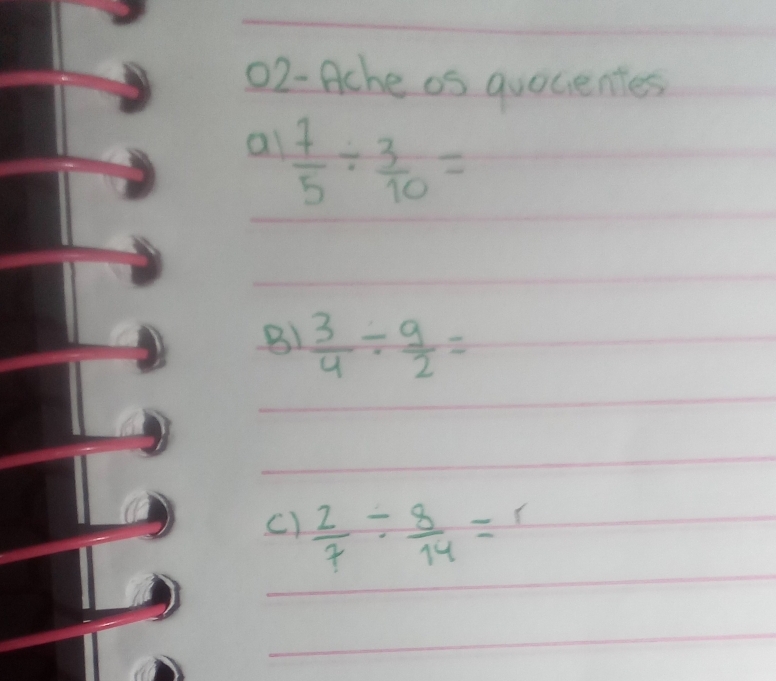 02-Ache os quocientes
a) 7/5 ÷ 3/10 =
B) 3/4 ÷ 9/2 =
C) 2/7 ÷ 8/14 =